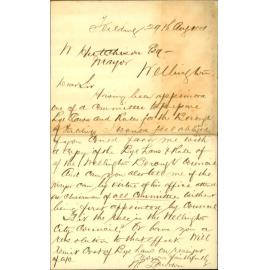 Feilding 29th Aug
W Hutchison Esq
Mayor
Wellington
Dear Sir
Having been appointed
one of a Committee to prepare
Bye Laws and Rules for the Borough
of Feilding I would feel obliged
if you could favor me with
a Copy of the Bye Laws & Rules
of the Wellington Borough Council
And can you also tell me if the
Mayor can by virtue of his office attend
as Chairman of all Committees without
being first appointed by Council
Is it the rule in the Wellington
City Council? Or have you a
resolution to that effect. Will
remit Cost of Bye Laws on receipt
of a/c
Yours faithfully